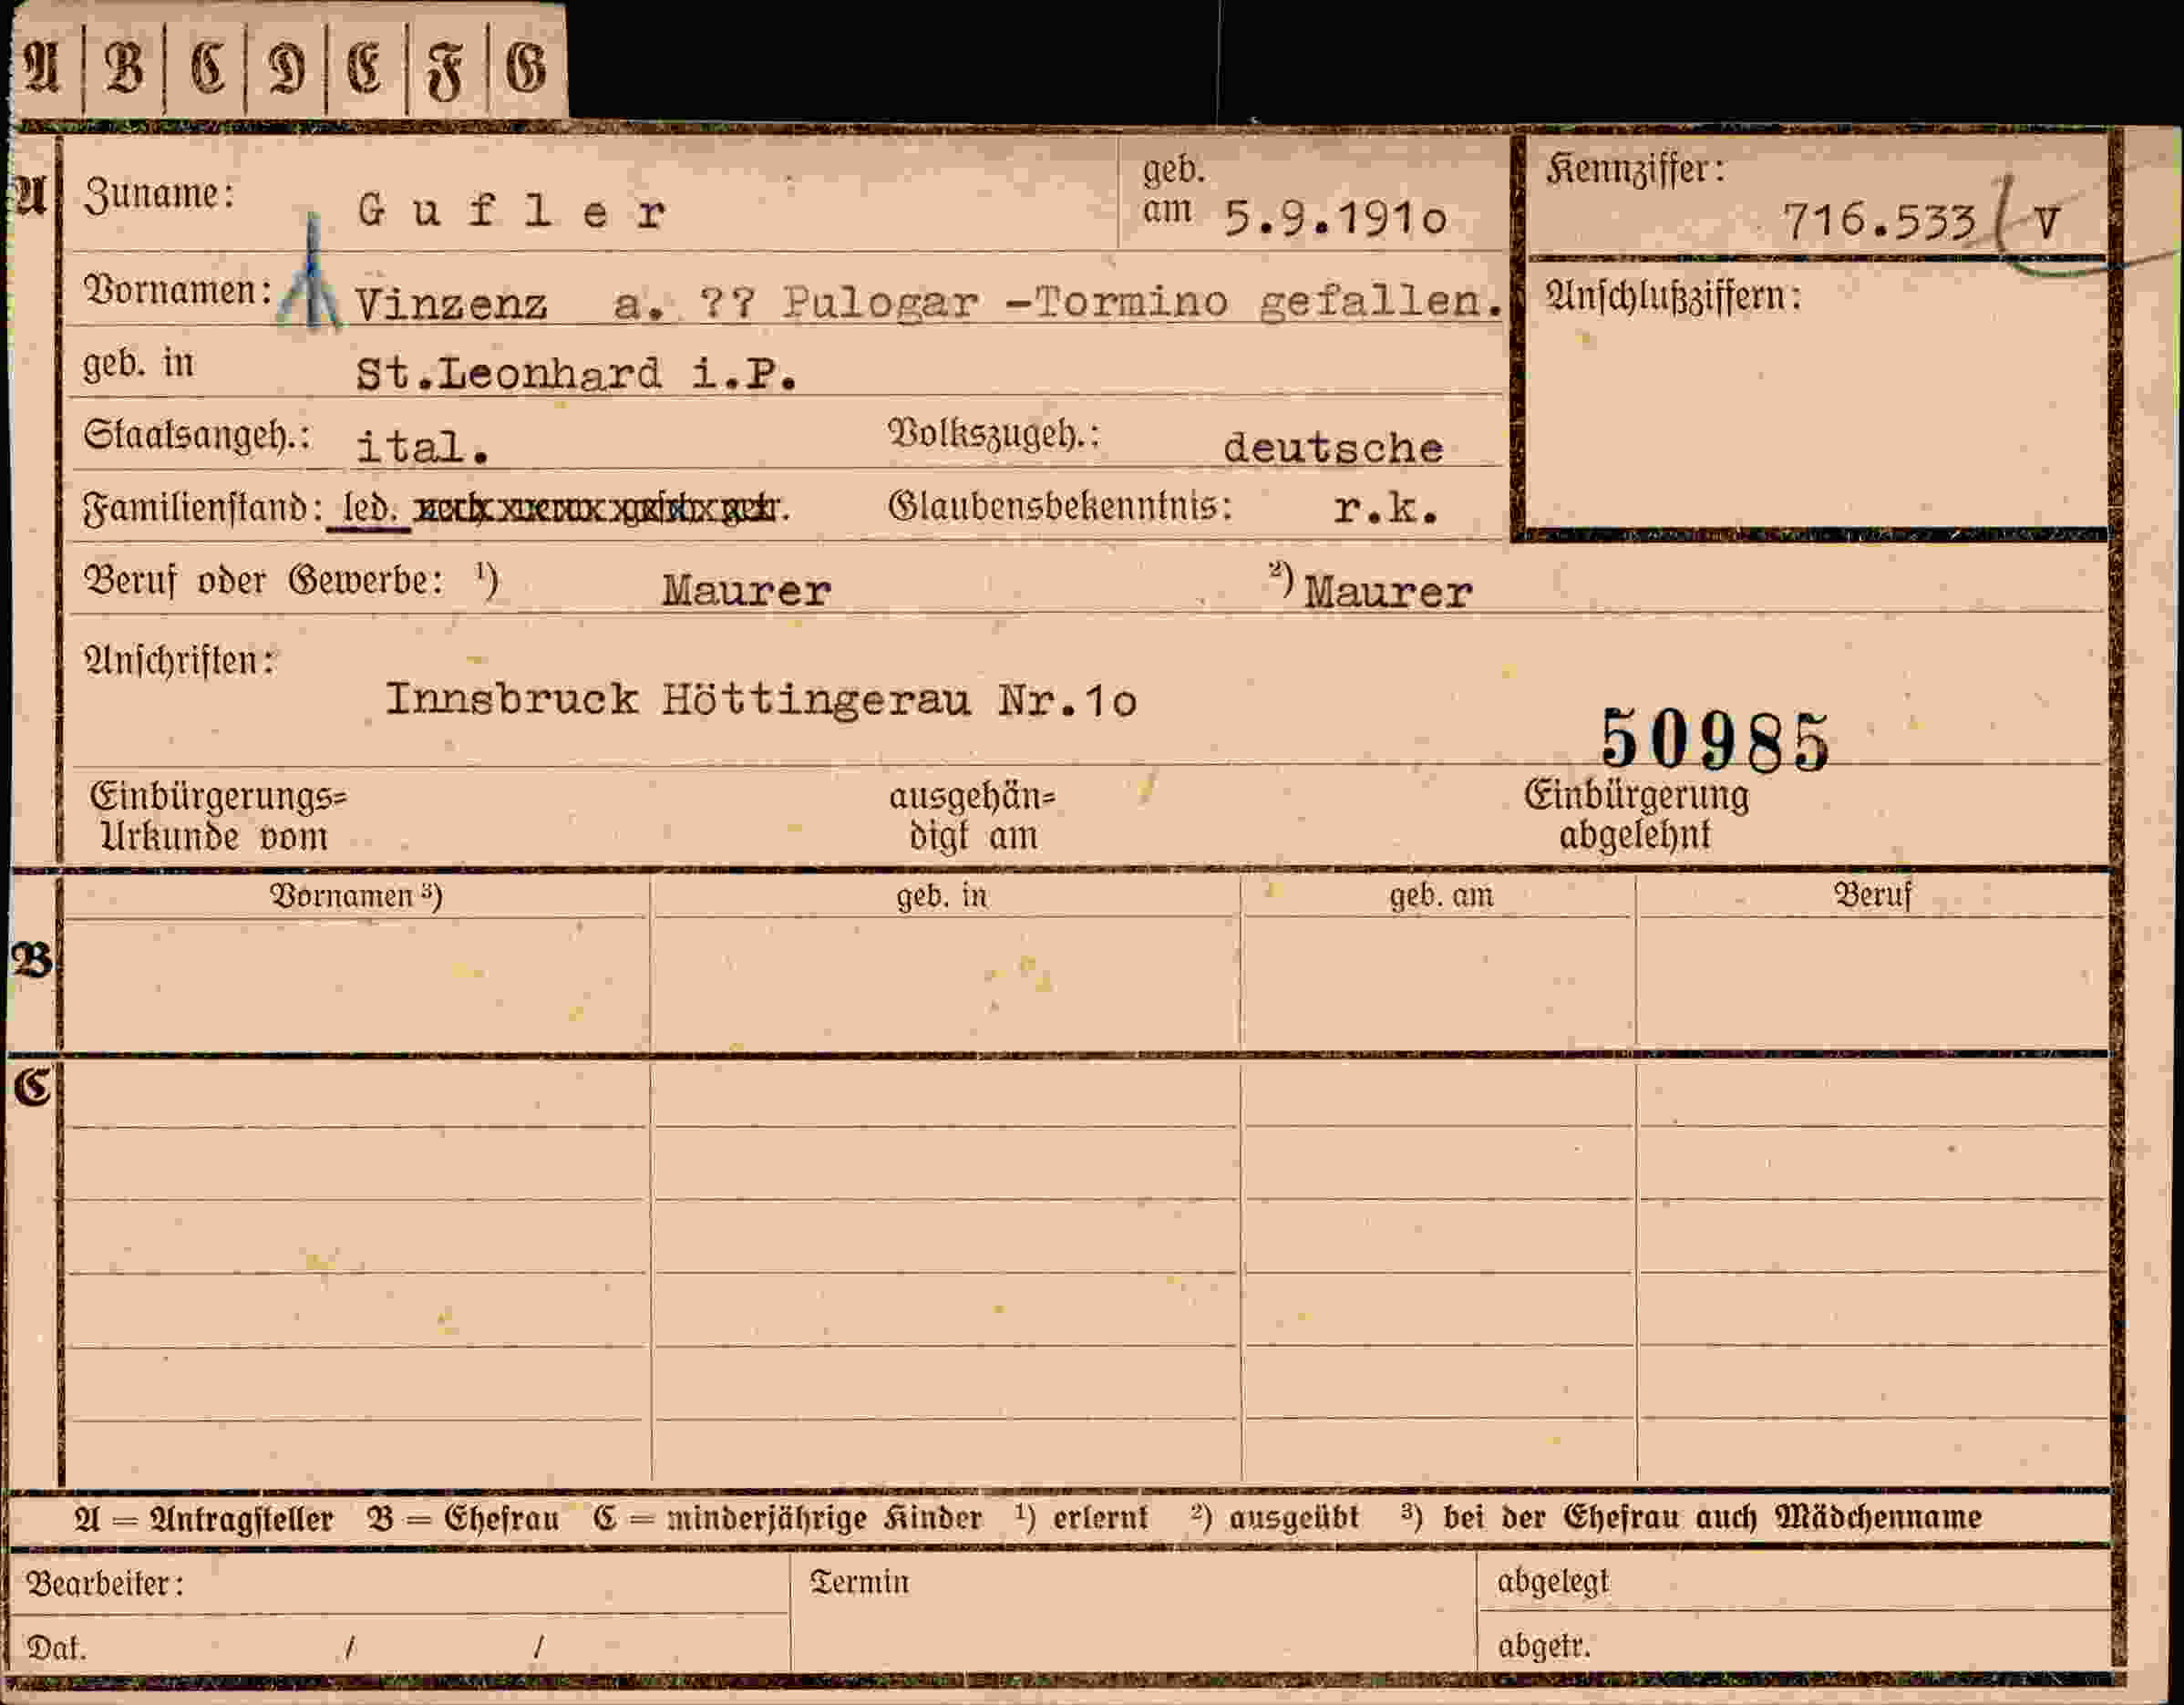 A B C D E F G
A Zuname: Gufler geb. am 5.9.191o Kennziffer: 716.533 / V
Vornamen: Vinzenz a. ?? Pulogar -Tormino gefallen. Anschlußziffern:
geb. in St.Leonhard i.P.
Staatsangeh.: ital. Volkszugeh.: deutsche
Familienstand: led. Glaubensbekenntnis: r.k.
Beruf oder Gewerbe: ¹) Maurer ²) Maurer
Anschriften:
Innsbruck Höttingerau Nr.1o
50985
Einbürgerungs= ausgehän= Einbürgerung
Urkunde vom digt am abgelehnt
Vornamen ³) geb. in geb. am Beruf
B
C
A = Antragsteller B = Ehefrau C = minderjährige Kinder ¹) erlernt ²) ausgeübt ³) bei der Ehefrau auch Mädchenname
Bearbeiter: Termin abgelegt
Dat. / / abgetr.